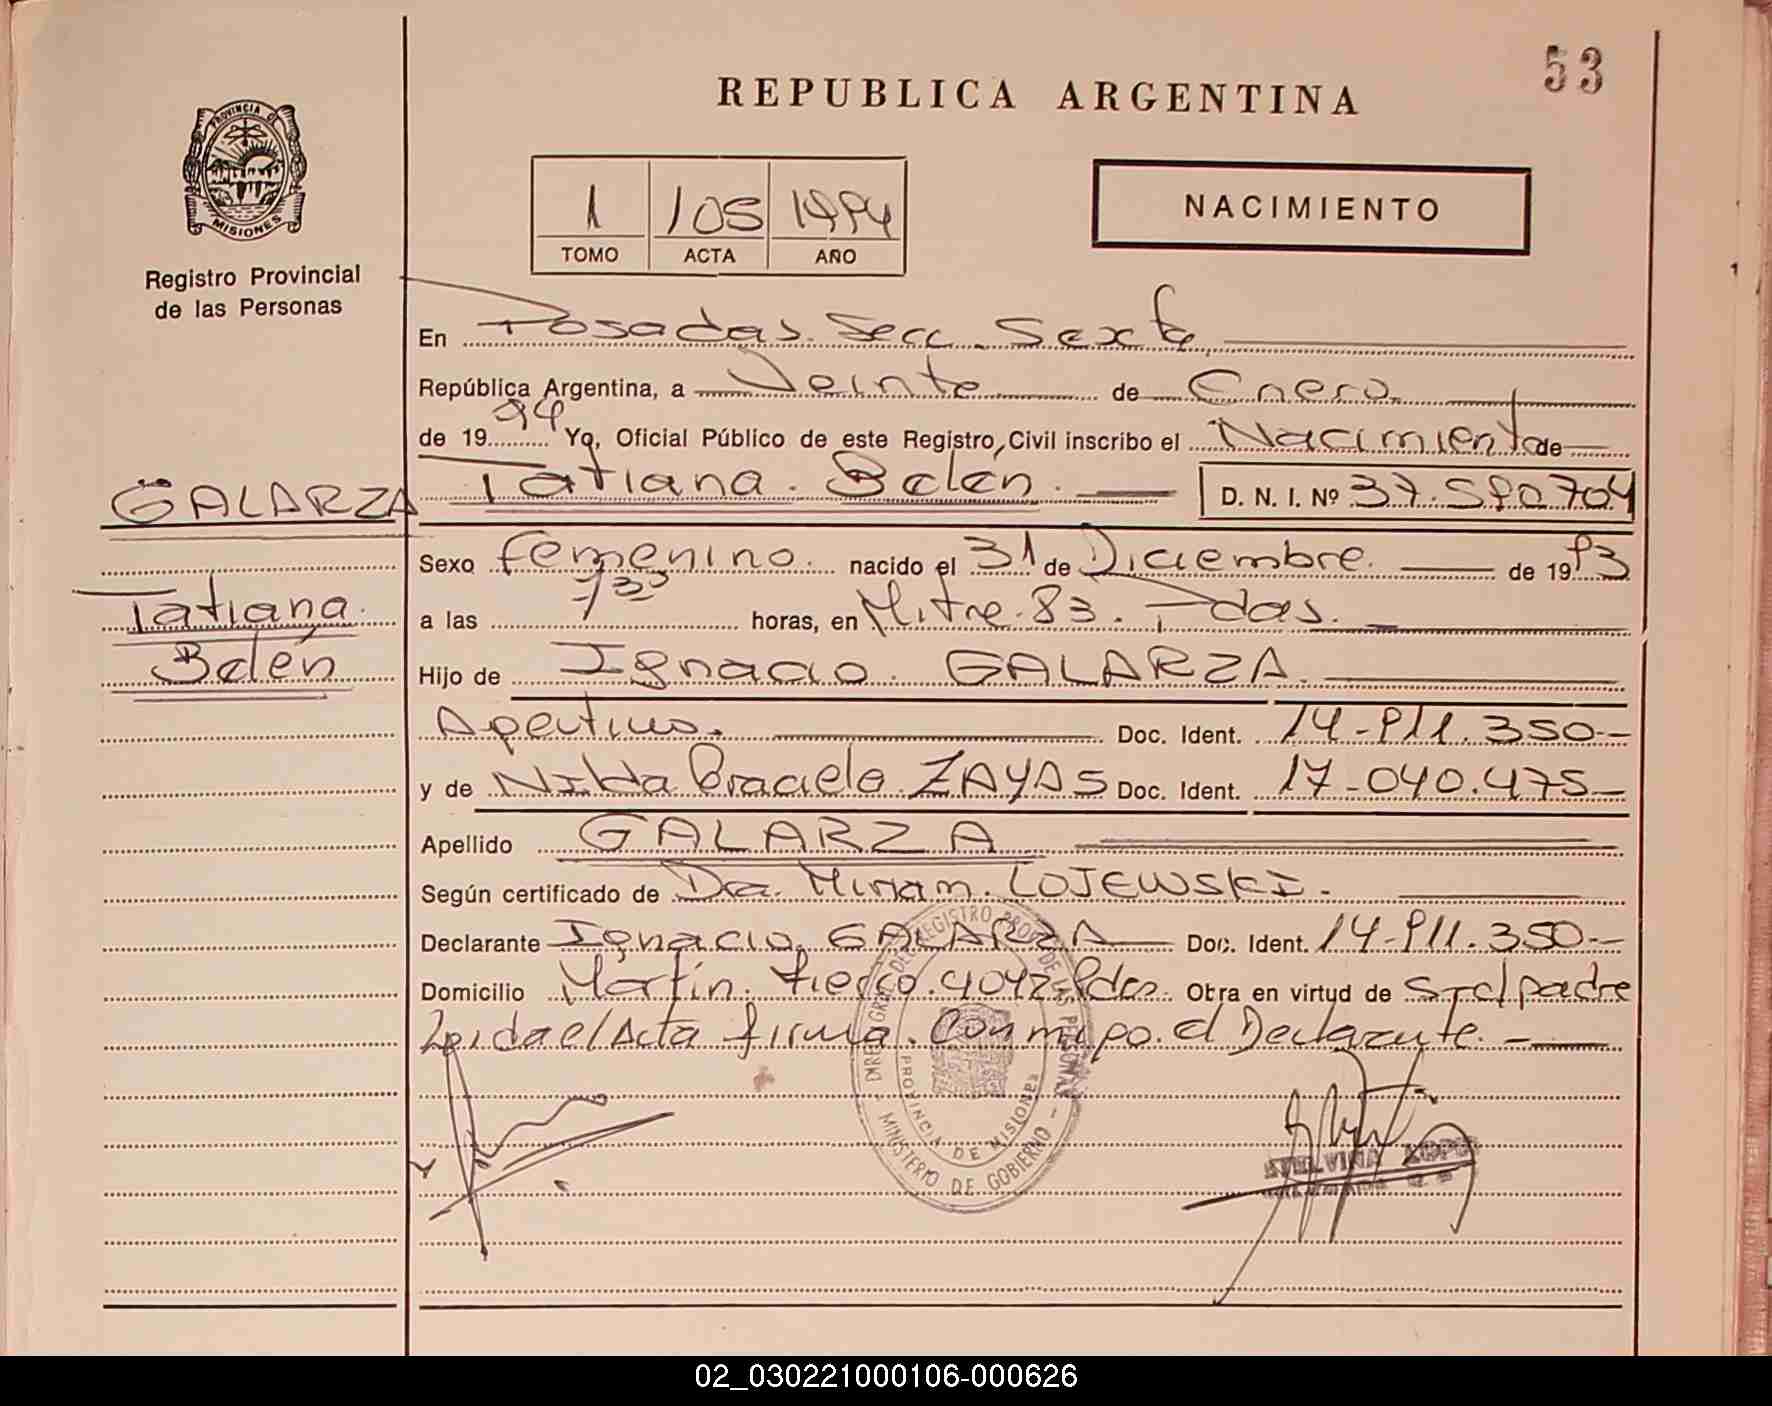 53
REPUBLICA ARGENTINA
PROVINCIA DE
MISIONES
Registro Provincial
de las Personas
1 105 1994
TOMO ACTA AÑO
NACIMIENTO
En Posadas. Secc. Sexta
República Argentina, a Veinte de Enero
de 1994 Yo, Oficial Público de este Registro Civil inscribo el Nacimiento de
GALARZA
Tatiana. Belén. D. N. I. Nº 37.590.704
Sexo femenino. nacido el 31 de Diciembre. de 1993
Tatiana.
Belén
a las 7³⁵ horas, en Mitre 83. Pdas.
Hijo de Ignacio. GALARZA.
Argentino. Doc. Ident. 14-911.350--
y de Nilda Graciela ZAYAS Doc. Ident. 17-040.475-
Apellido GALARZA
Según certificado de Dra. Miriam. LOJEWSKI.
Declarante Ignacio GALARZA Doc. Ident. 14-911.350--
Domicilio Martín. Fierro. 4042 Pdas. Obra en virtud de S/ el padre
Leida el Acta firma. Conmigo. el Declarante. -
PROVINCIA DE MISIONES
MINISTERIO DE GOBIERNO
02_030221000106-000626